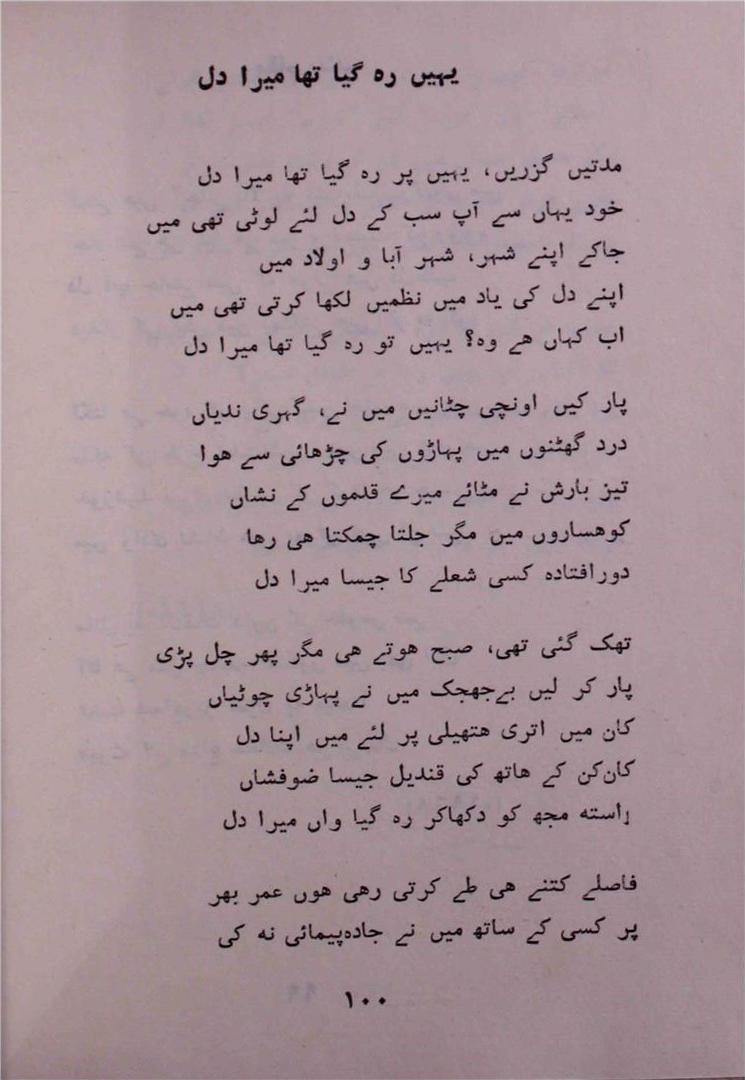 یہیں رہ گیا تھا میرا دل
مدتیں گزریں، یہیں پر رہ گیا تھا میرا دل
خود یہاں سے آپ سب کے دل لئے لوٹی تھی میں
جاکے اپنے شہر، شہر آبا و اولاد میں
اپنے دل کی یاد میں نظمیں لکھا کرتی تھی میں
اب کہاں ھے وہ؟ یہیں تو رہ گیا تھا میرا دل
پار کیں اونچی چٹانیں میں نے، گہری ندیاں
درد گھٹنوں میں پہاڑوں کی چڑھائی سے ھوا
تیز بارش نے مٹائے میرے قدموں کے نشاں
کوھساروں میں مگر جلتا چمکتا ھی رھا
دورافتادہ کسی شعلے کا جیسا میرا دل
تھک گئی تھی، صبح ھوتے ھی مگر پھر چل پڑی
پار کر لیں بےجھجک میں نے پہاڑی چوٹیاں
کان میں اتری ھتھیلی پر لئے میں اپنا دل
کان‌کن کے ھاتھ کی قندیل جیسا ضوفشاں
راستہ مجھ کو دکھاکر رہ گیا واں میرا دل
فاصلے کتنے ھی طے کرتی رھی ھوں عمر بھر
پر کسی کے ساتھ میں نے جادہ‌پیمائی نہ کی
۱۰۰